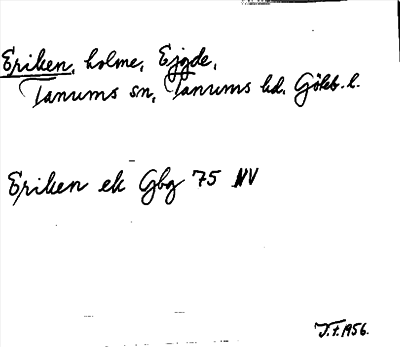 Eriken, holme, Ejgde,
Tanums sn, Tanums hd. Göteb. l.
Eriken ek Gbg 75 NV
T.t. 1956.